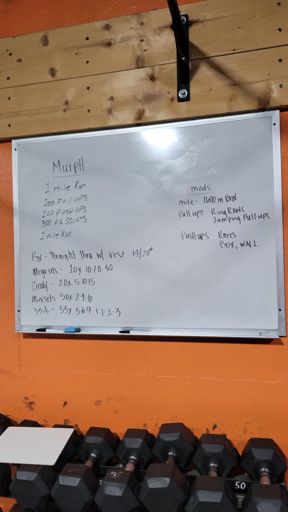 MURPH
1 mile Run
100 PULLUPS
200 PUSHUPS
300 AIR SQUATS
1 mile Run
Rx - Straight thru w/ vest 14/20#
Megasets - 10x 10 20 30
Cindy - 20x 5 10 15
Minisets 50x 2 4 6
33's - 33x 3 6 9 + 1 2 3
mods
mile: 1600 m Row
Pullups: Ring Rows
Jumping Pull-ups
Pushups: Knees
Box, WALL
50